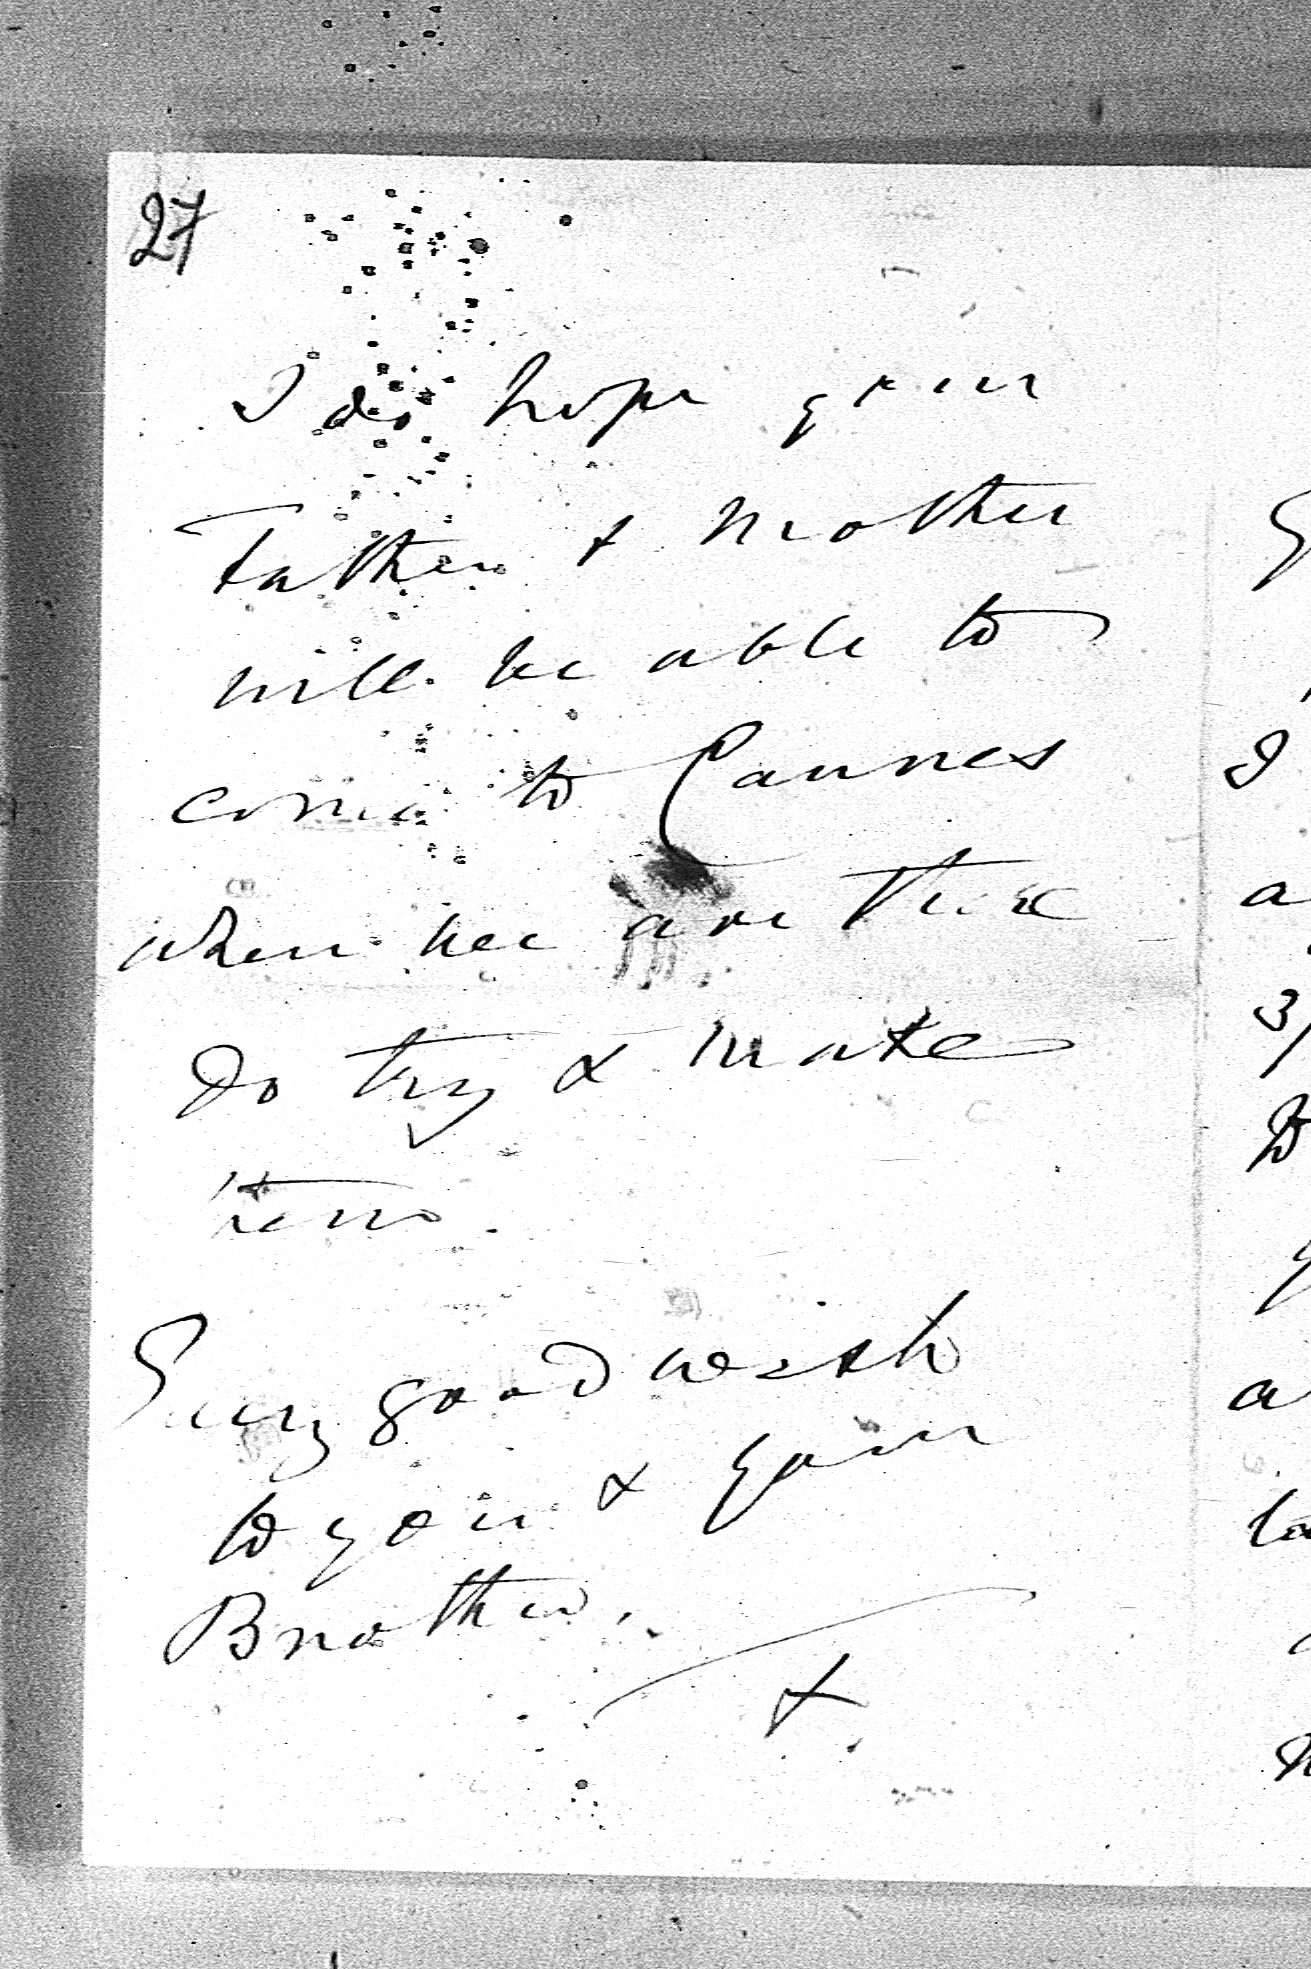 27
I do hope your
Father & Mother
will be able to
come to Cannes
when we are there
Do try & make
them.
Every good wish
to you & your
Brother.
I
a
to
a